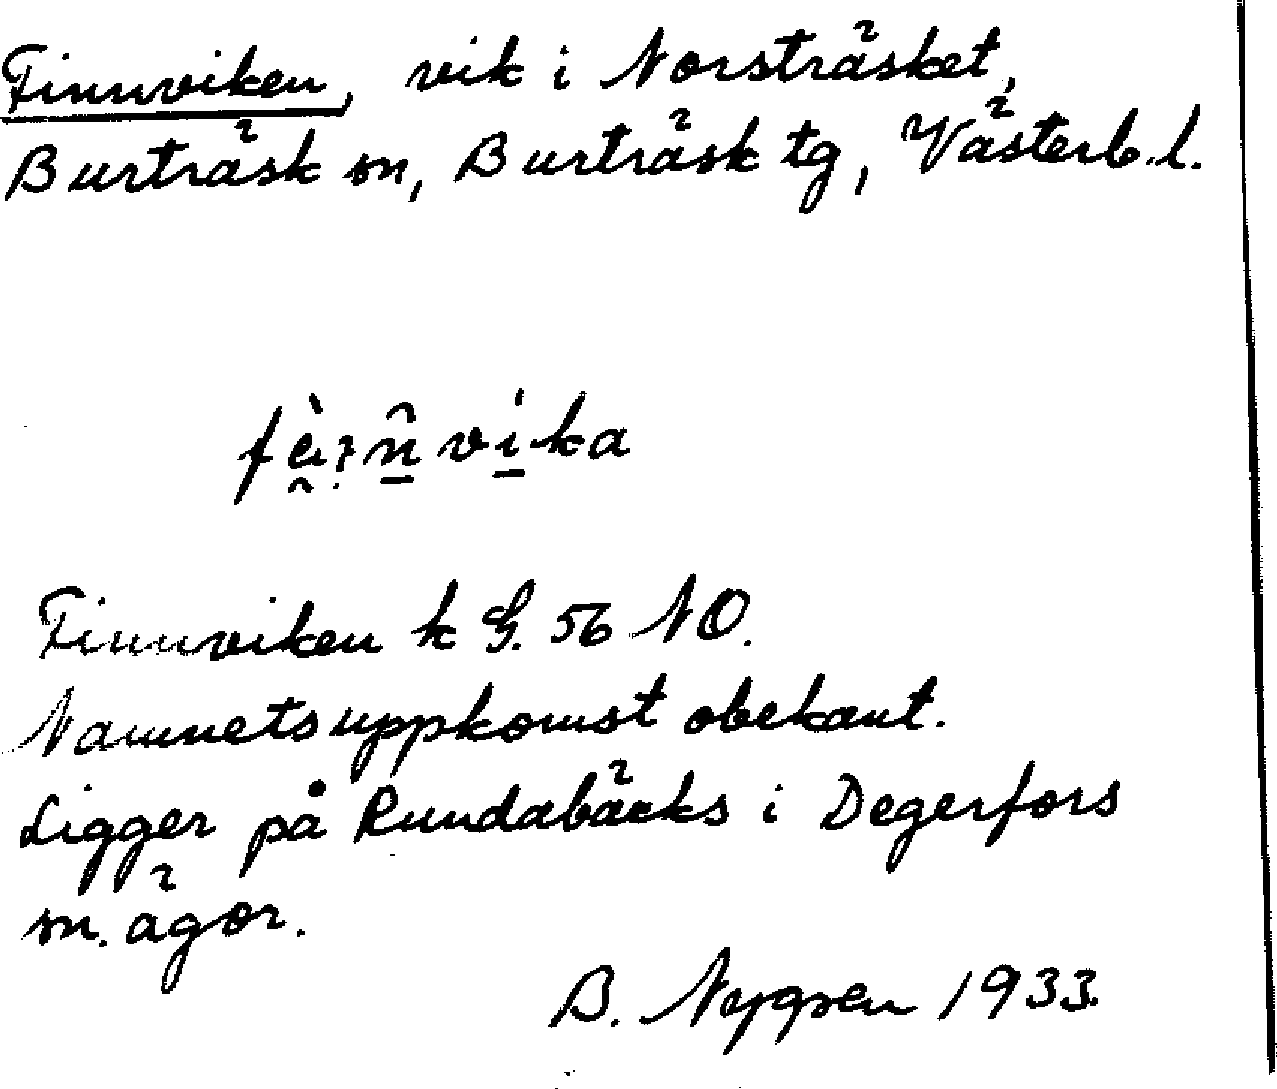 Finnviken, vik i Norsträsket,
Burträsk sn, Burträsk tg, Västerb.l.
Finnviken k G. 56 NO.
Namnets uppkomst obekant.
Ligger på Rundabäcks i Degerfors
sn. ägor.
B. Nygren 1933.